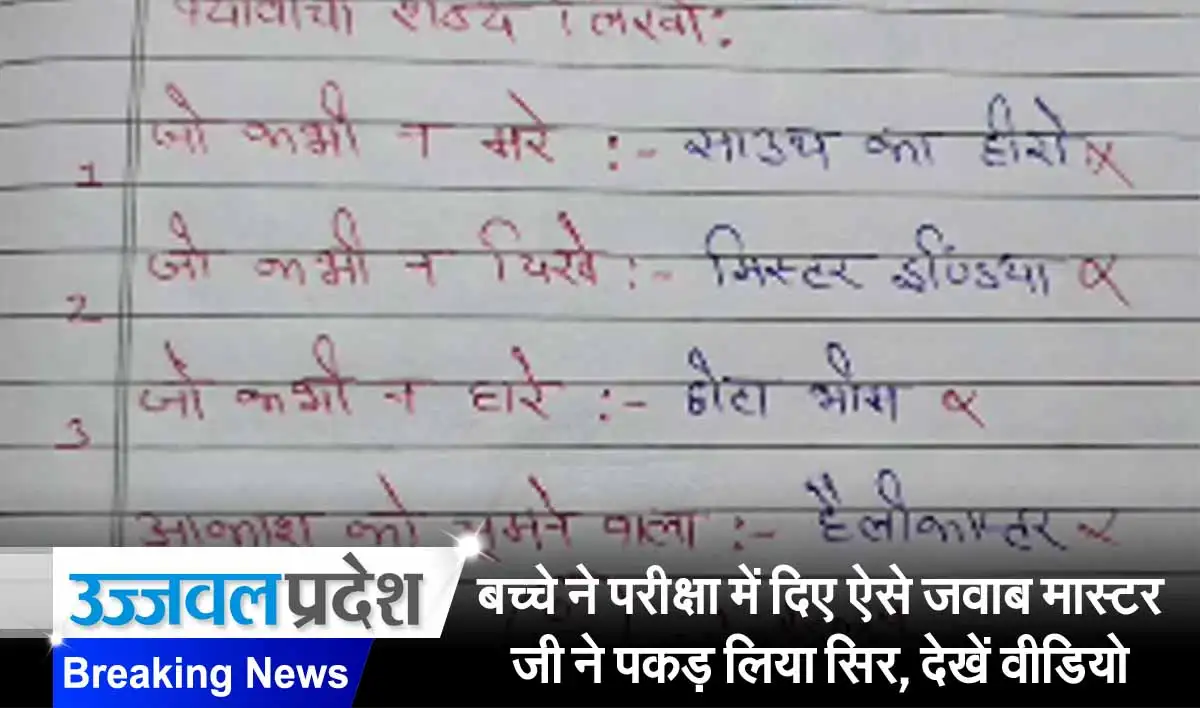 शब्द लिखो:
1 जो कभी न मरे :- साउथ का हीरो x
2 जो कभी न दिखे :- मिस्टर इण्डिया x
3 जो कभी न हारे :- छोटा भीम x
आकाश को चूमने वाला :- हैलीकाप्टर x
उज्जवल प्रदेश
Breaking News
बच्चे ने परीक्षा में दिए ऐसे जवाब मास्टर
जी ने पकड़ लिया सिर, देखें वीडियो